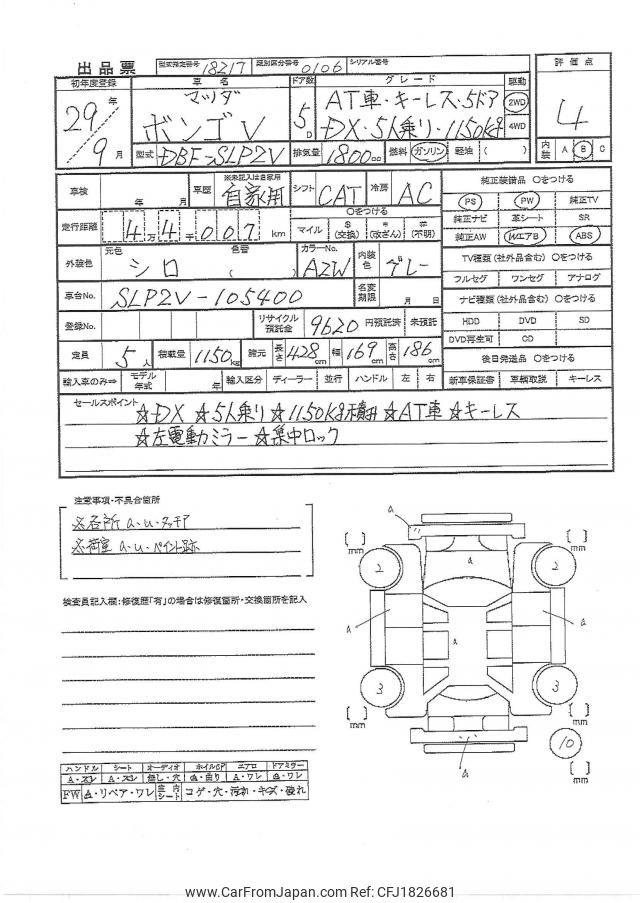 出品票 型式指定番号 18217 類別区分番号 0106 シリアル番号
初年度登録 車名 ドア数 グレード 駆動 評価点
29年 マツダ 5D AT車・キーレス・5ドア 2WD 4
9月 ボンゴV DX・5人乗り・1150kg 4WD
型式 DBF-SLP2V 排気量 1800cc 燃料 ガソリン 軽油 ( ) 内装 A B C
車検 年 月 車歴 ※未記入は自家用 自家用 シフト CAT 冷房 AC
純正装備品 〇をつける
PS PW 純正TV
純正ナビ 革シート SR
純正AW WエアB ABS
走行距離 4 4 007 km 万 千
〇をつける
マイル $(交換) *(改ざん) #(不明)
TV種類(社外品含む) 〇をつける
フルセグ ワンセグ アナログ
外装色 元色 シロ 色替 ( ) カラーNo. A2W 内装色 グレー
車台No. SLP2V-105400 名変期限 月 日
ナビ種類(社外品含む) 〇をつける
HDD DVD SD
DVD再生可 CD
登録No. リサイクル預託金 9620 円預託済 未預託
定員 5人 積載量 1150kg 諸元 長さ 428cm 幅 169cm 高さ 186cm
後日発送品 〇をつける
輸入車のみ⇒ モデル年式 年 輸入区分 ディーラー 並行 ハンドル 左 右 新車保証書 車輌取説 キーレス
セールスポイント
☆DX ☆5人乗り ☆1150kg積 ☆AT車 ☆キーレス
☆左電動ミラー ☆集中ロック
注意事項・不具合箇所
※各所a.u.タッチア
※荷室a.u.ペイント跡
検査員記入欄:修復歴「有」の場合は修復箇所・交換箇所を記入
[ ] mm
[ ] mm
2 a 2
a a a
3 3
[ ] mm
[ ] mm
a 10
[ ] mm
ハンドル シート オーディオ ホイルCP エアロ ドアミラー
A・スレ A・スレ 無し・穴 曲り A・ワレ ワレ
FW A・リペア・ワレ 室内シート コゲ・穴・汚れ・キズ・破れ
www.CarFromJapan.com Ref: CFJ1826681